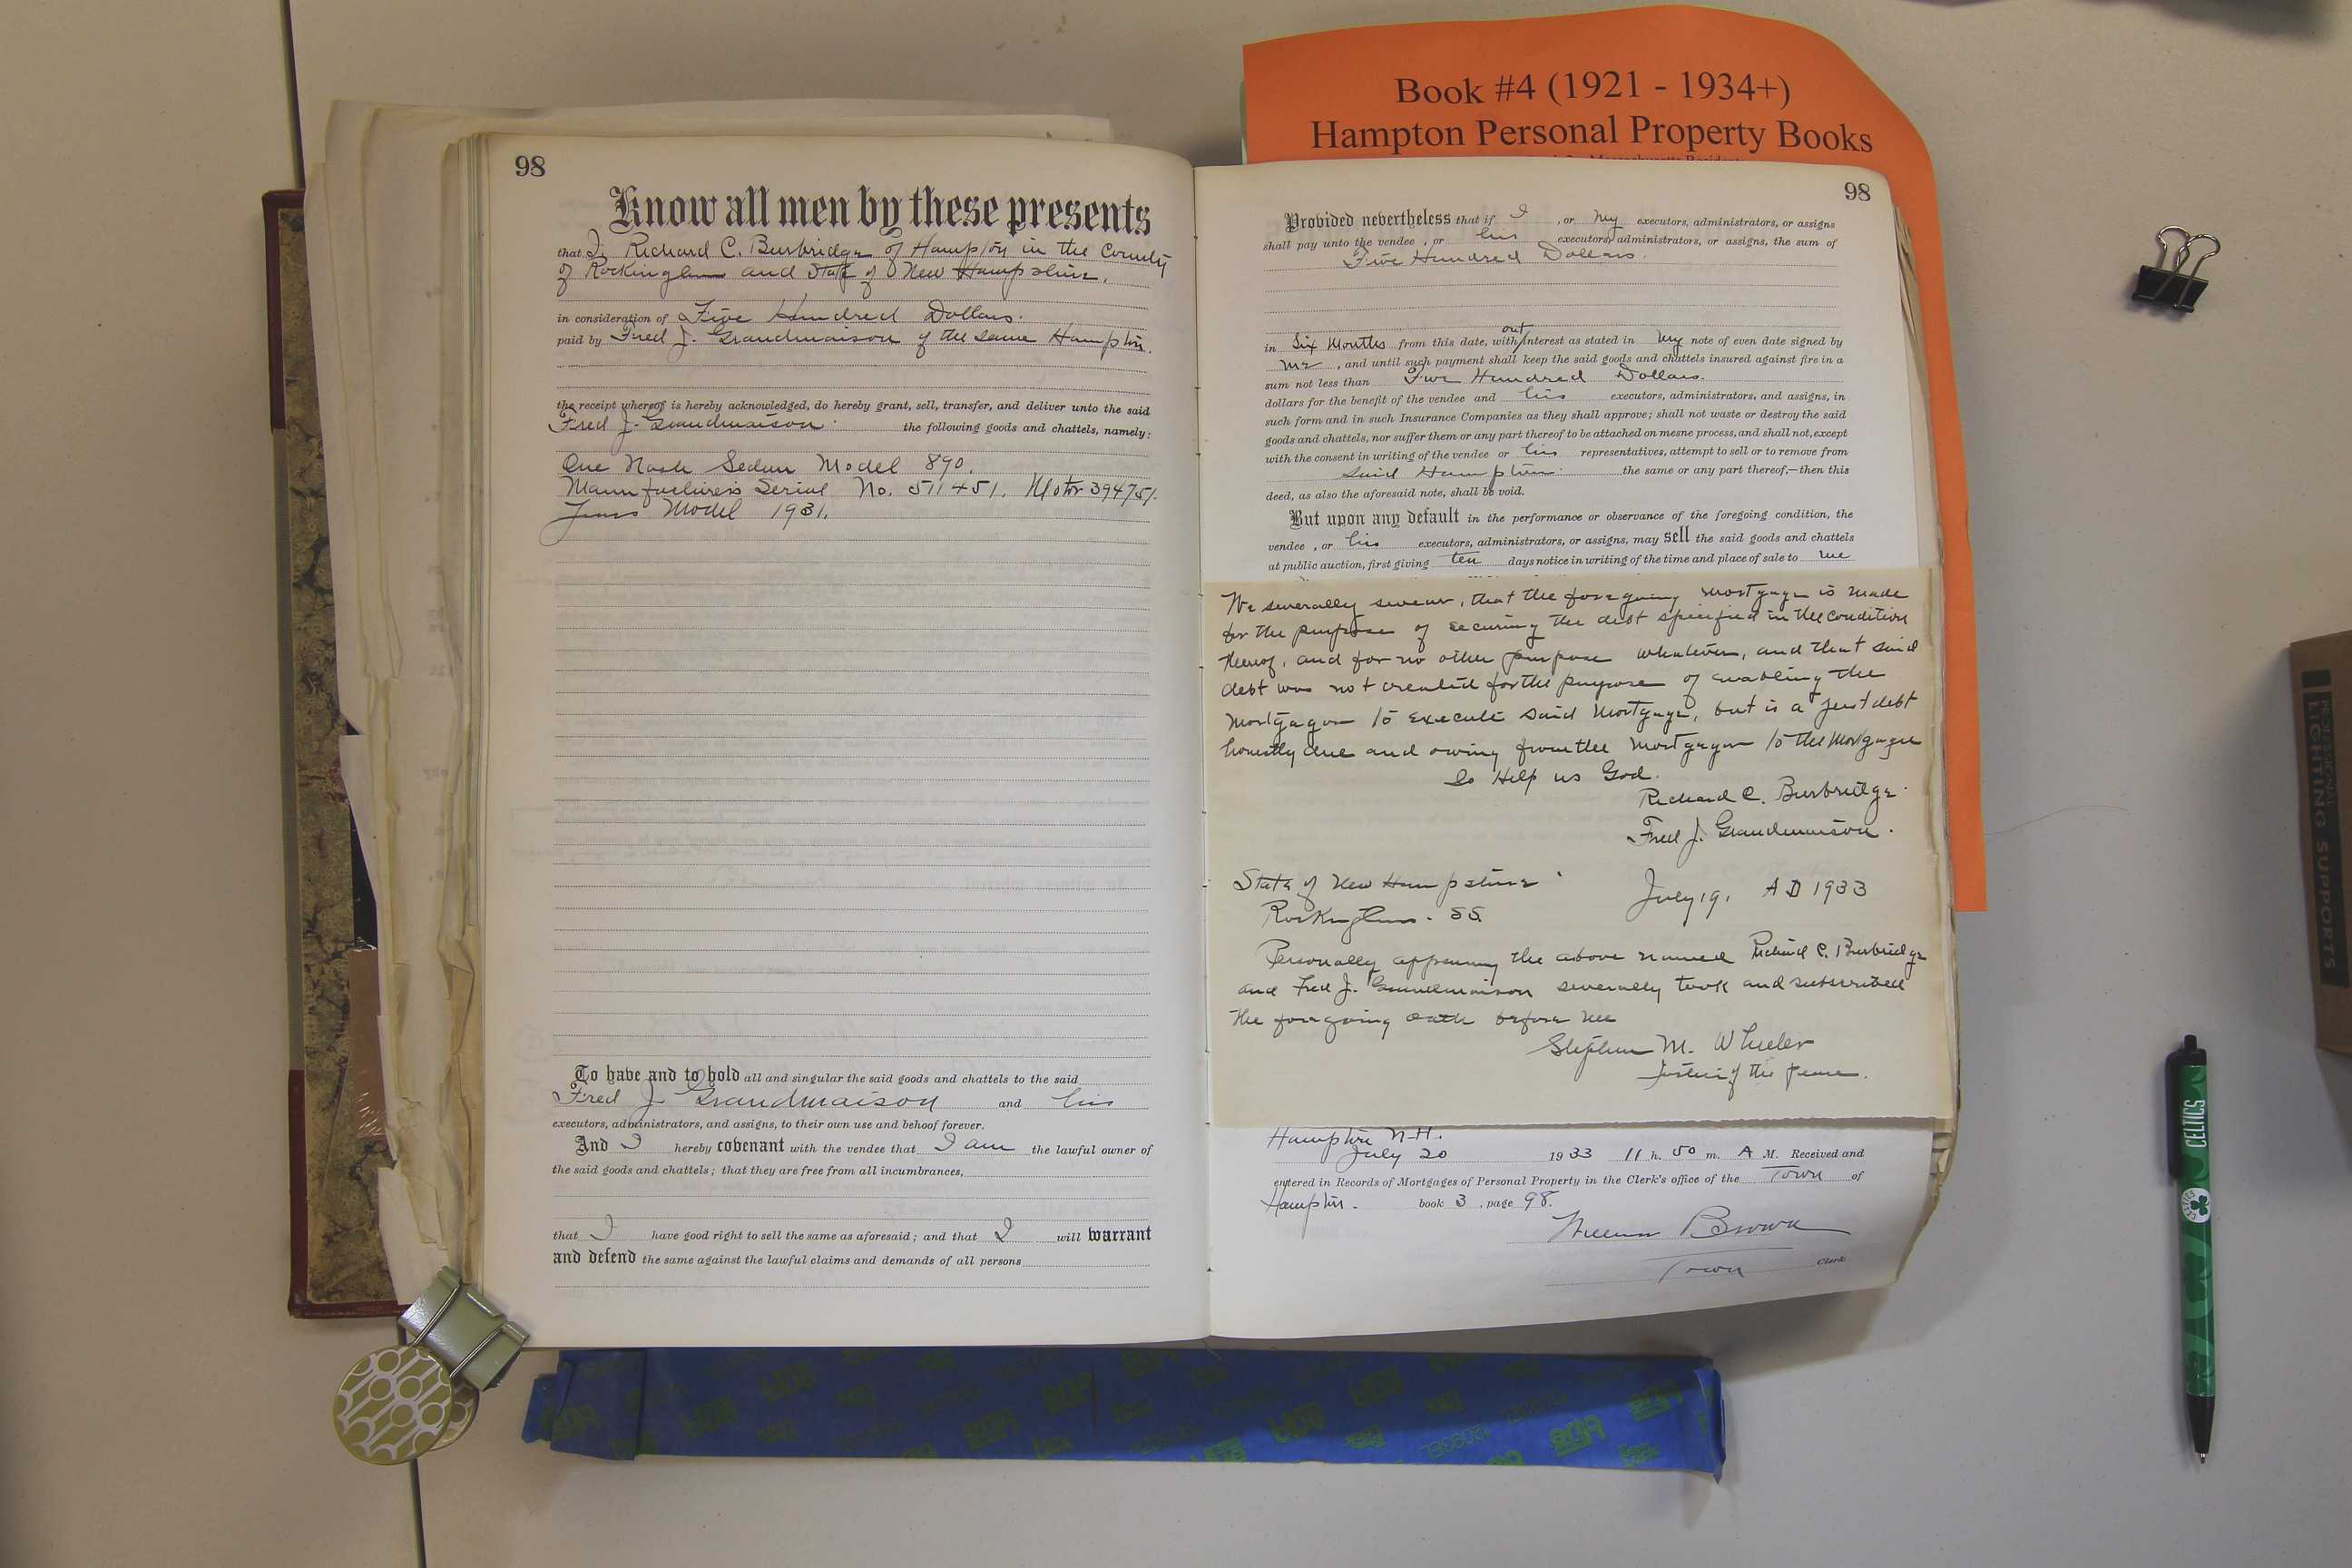 Book #4 (1921 - 1934+)
Hampton Personal Property Books
98
Know all men by these presents
that I, Richard C. Burbridge of Hampton in the County
of Rockingham and State of New Hampshire.
in consideration of Five Hundred Dollars.
paid by Fred J. Grandmaison of the same Hampton.
the receipt whereof is hereby acknowledged, do hereby grant, sell, transfer, and deliver unto the said
Fred J. Grandmaison. the following goods and chattels, namely:
One Nash Sedan Model 890.
Manufacturers Serial No. 511451. Motor 394751.
Years Model 1931.
To have and to hold all and singular the said goods and chattels to the said
Fred J. Grandmaison and his
executors, administrators, and assigns, to their own use and behoof forever.
And I hereby covenant with the vendee that I am the lawful owner of
the said goods and chattels; that they are free from all incumbrances,
that I have good right to sell the same as aforesaid; and that I will warrant
and defend the same against the lawful claims and demands of all persons
98
Provided nevertheless that if I , or my executors, administrators, or assigns
shall pay unto the vendee , or his executors, administrators, or assigns, the sum of
Five Hundred Dollars.
in Six Months from this date, without interest as stated in my note of even date signed by
me , and until such payment shall keep the said goods and chattels insured against fire in a
sum not less than Five Hundred Dollars.
dollars for the benefit of the vendee and his executors, administrators, and assigns, in
such form and in such Insurance Companies as they shall approve; shall not waste or destroy the said
goods and chattels, nor suffer them or any part thereof to be attached on mesne process, and shall not, except
with the consent in writing of the vendee or his representatives, attempt to sell or to remove from
said Hampton. the same or any part thereof,—then this
deed, as also the aforesaid note, shall be void.
But upon any default in the performance or observance of the foregoing condition, the
vendee , or his executors, administrators, or assigns, may sell the said goods and chattels
at public auction, first giving ten days notice in writing of the time and place of sale to me
We severally swear, that the foregoing mortgage is made
for the purpose of securing the debt specified in the condition
thereof, and for no other purpose whatever, and that said
debt was not created for the purpose of enabling the
Mortgagor to execute said Mortgage, but is a just debt
honestly due and owing from the Mortgagor to the Mortgagee
So Help us God.
Richard C. Burbridge.
Fred J. Grandmaison.
State of New Hampshire
Rockingham. SS. July 19. AD 1933
Personally appearing the above named Richard C. Burbridge
and Fred J. Grandmaison severally took and subscribed
the foregoing oath before me
Stephen M. Wheeler
Justice of the peace.
Hampton N.H.
July 20 1933 11 h. 50 m. A M. Received and
entered in Records of Mortgages of Personal Property in the Clerk's office of the Town of
Hampton. book 3 , page 98.
William Brown
Town Clerk
CELTICS
CELTICS
PROFESSIONAL
LIGHTING SUPPORTS